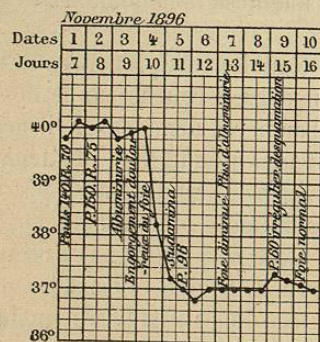 Novembre 1896
Dates 1 2 3 4 5 6 7 8 9 10
Jours 7 8 9 10 11 12 13 14 15 16
40°
39°
38°
37°
36°
Pouls 140. R. 70
P. 150. R. 75
Albuminurie
Engorgement doulou-
-reux du foie
Sudamina
P. 96
Foie diminué. Plus d'albuminurie
P. 80 irrégulier. desquamation
Foie normal